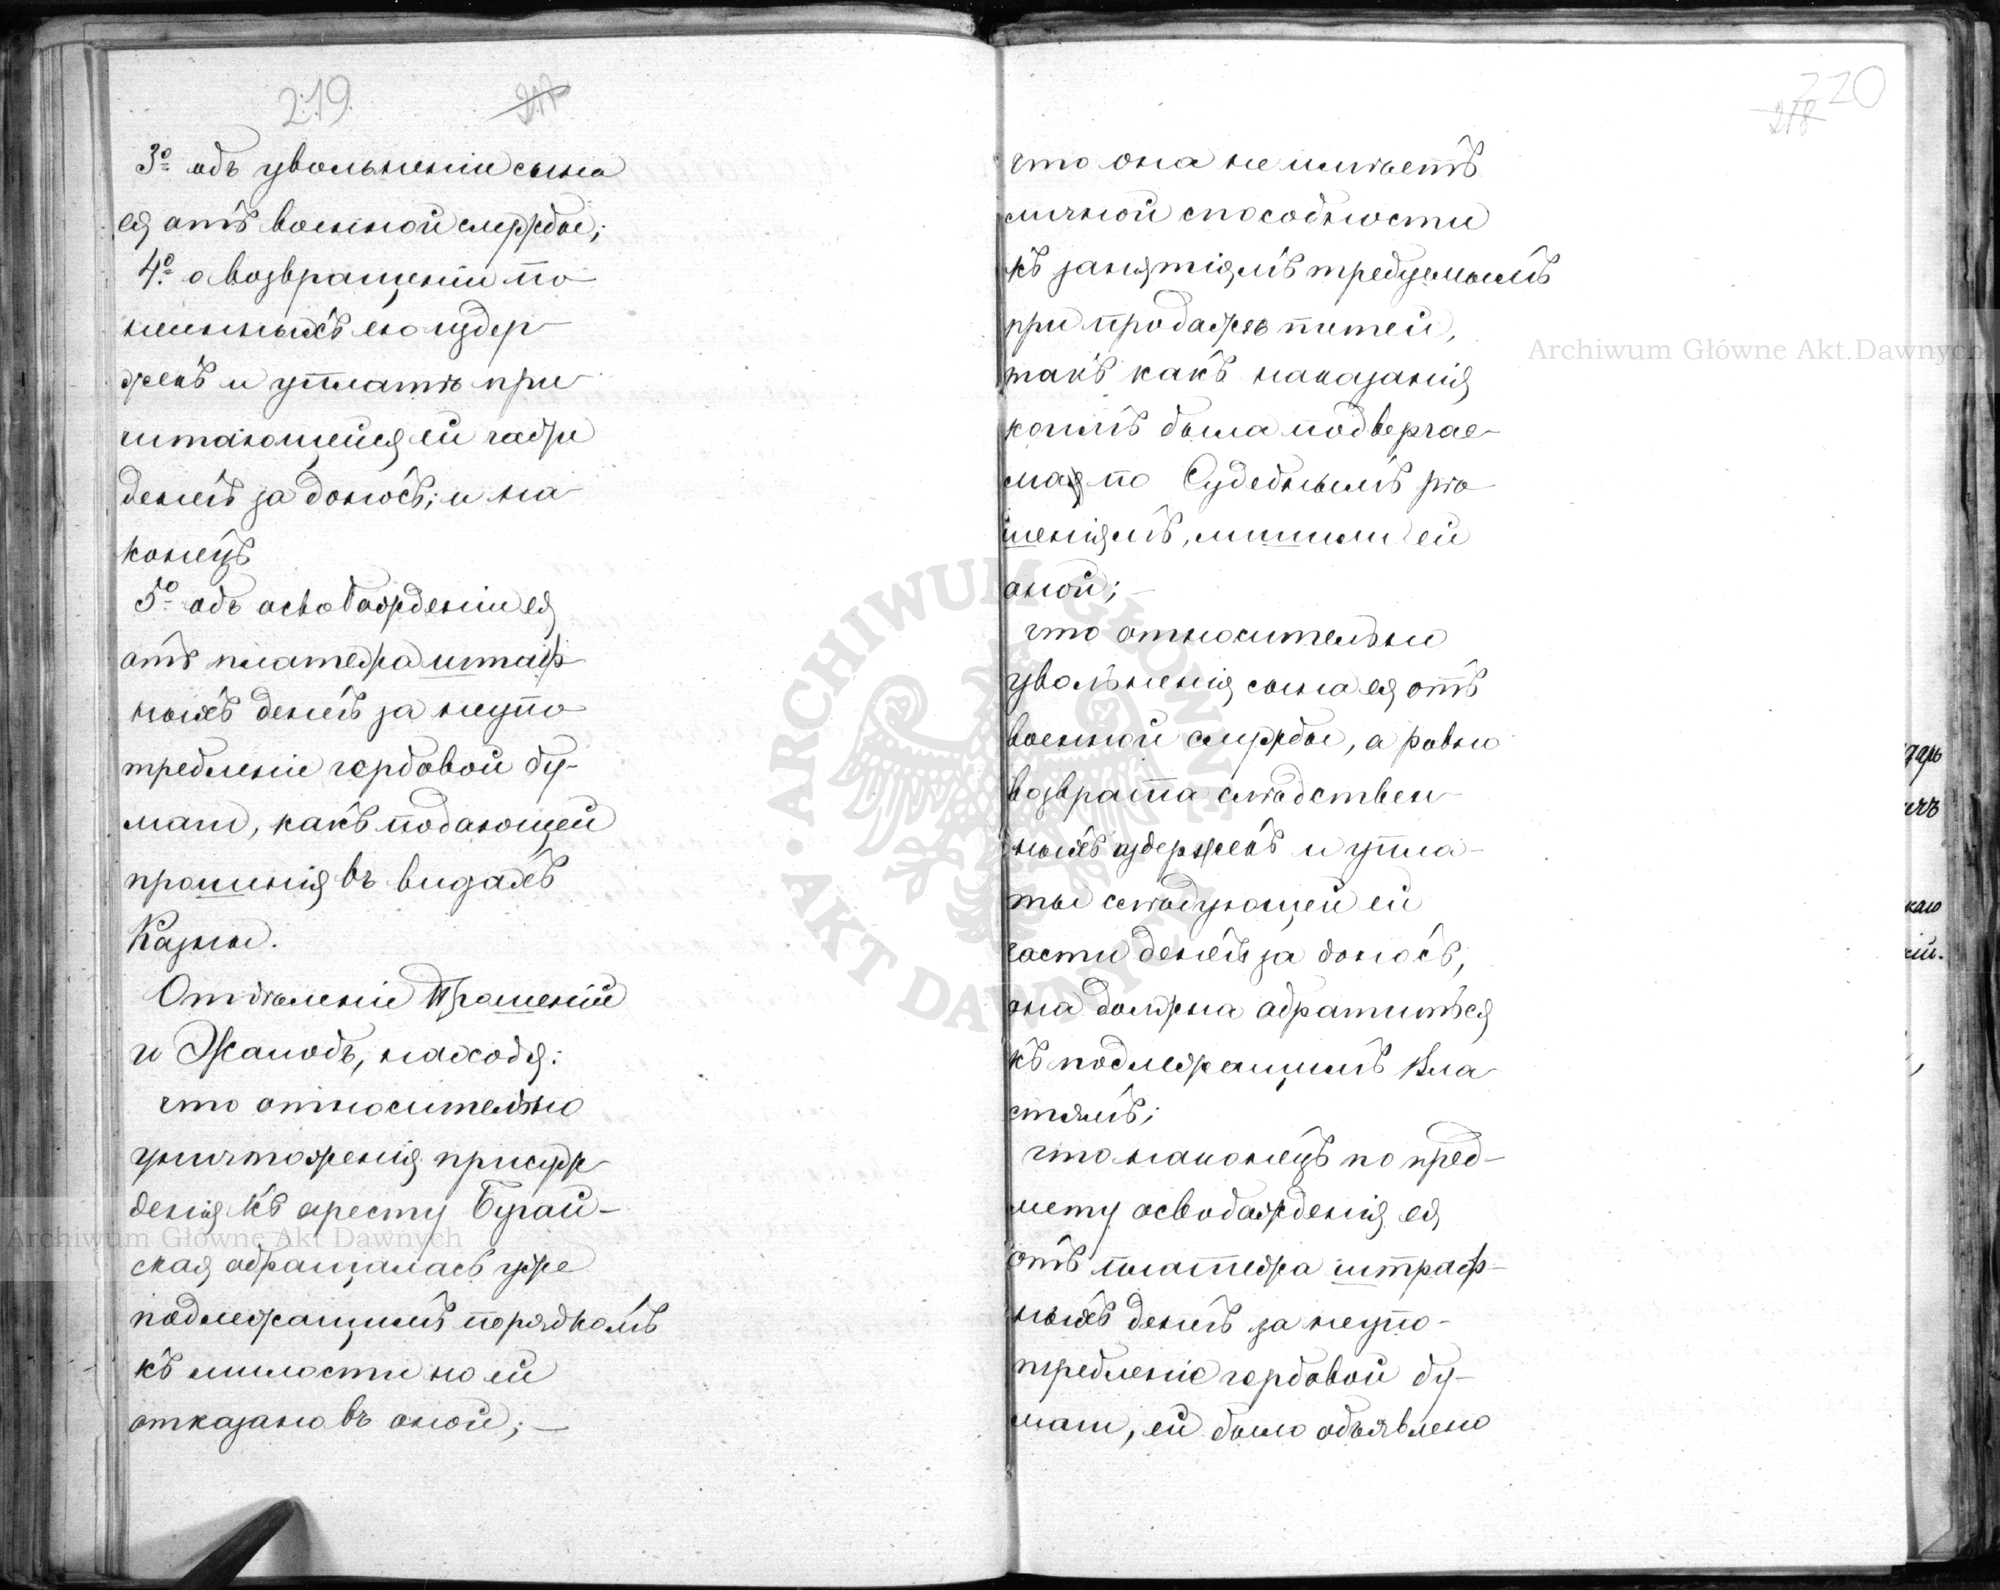 219 217
3º объ увольненіи сына
ея отъ военной службы;
4º о возвращеніи по
несенныхъ ею издер-
жекъ и уплатѣ при
читающейся ей части
денегъ за доносъ; и на
конецъ
5º объ освобожденіи ея
отъ платежа штраф
ныхъ денегъ за неупо
требленіе гербовой бу-
маги, какъ подающей
прошенія въ видахъ
Казны.
Отдѣленіе Прошеній
и Жалобъ, находя:
что относительно
уничтоженія присуж-
денія къ аресту Бурай-
ская обращалась уже
подлежащимъ порядкомъ
къ милости но ей
отказано въ оной; —
220
218
что она не имѣетъ
личной способности
къ занятіямъ требуемымъ
при продажѣ питей,
такъ какъ наказанія
коимъ была подвергае-
мая по Судебнымъ рѣ-
шеніямъ, лишили ей
оной; —
что относительно
увольненія сына ея отъ
военной службы, а равно
возврата слѣдствен-
ныхъ издержекъ и упла-
ты слѣдующей ей
части денегъ за доносъ,
она должна обратиться
къ подлежащимъ Вла-
стямъ;
что наконецъ по пред-
мету освобожденія ея
отъ платежа штраф-
ныхъ денегъ за неупо-
требленіе гербовой бу-
маги, ей было объявлено
Archiwum Główne Akt Dawnych
Archiwum Główne Akt Dawnych
ARCHIWUM GŁÓWNE AKT DAWNYCH